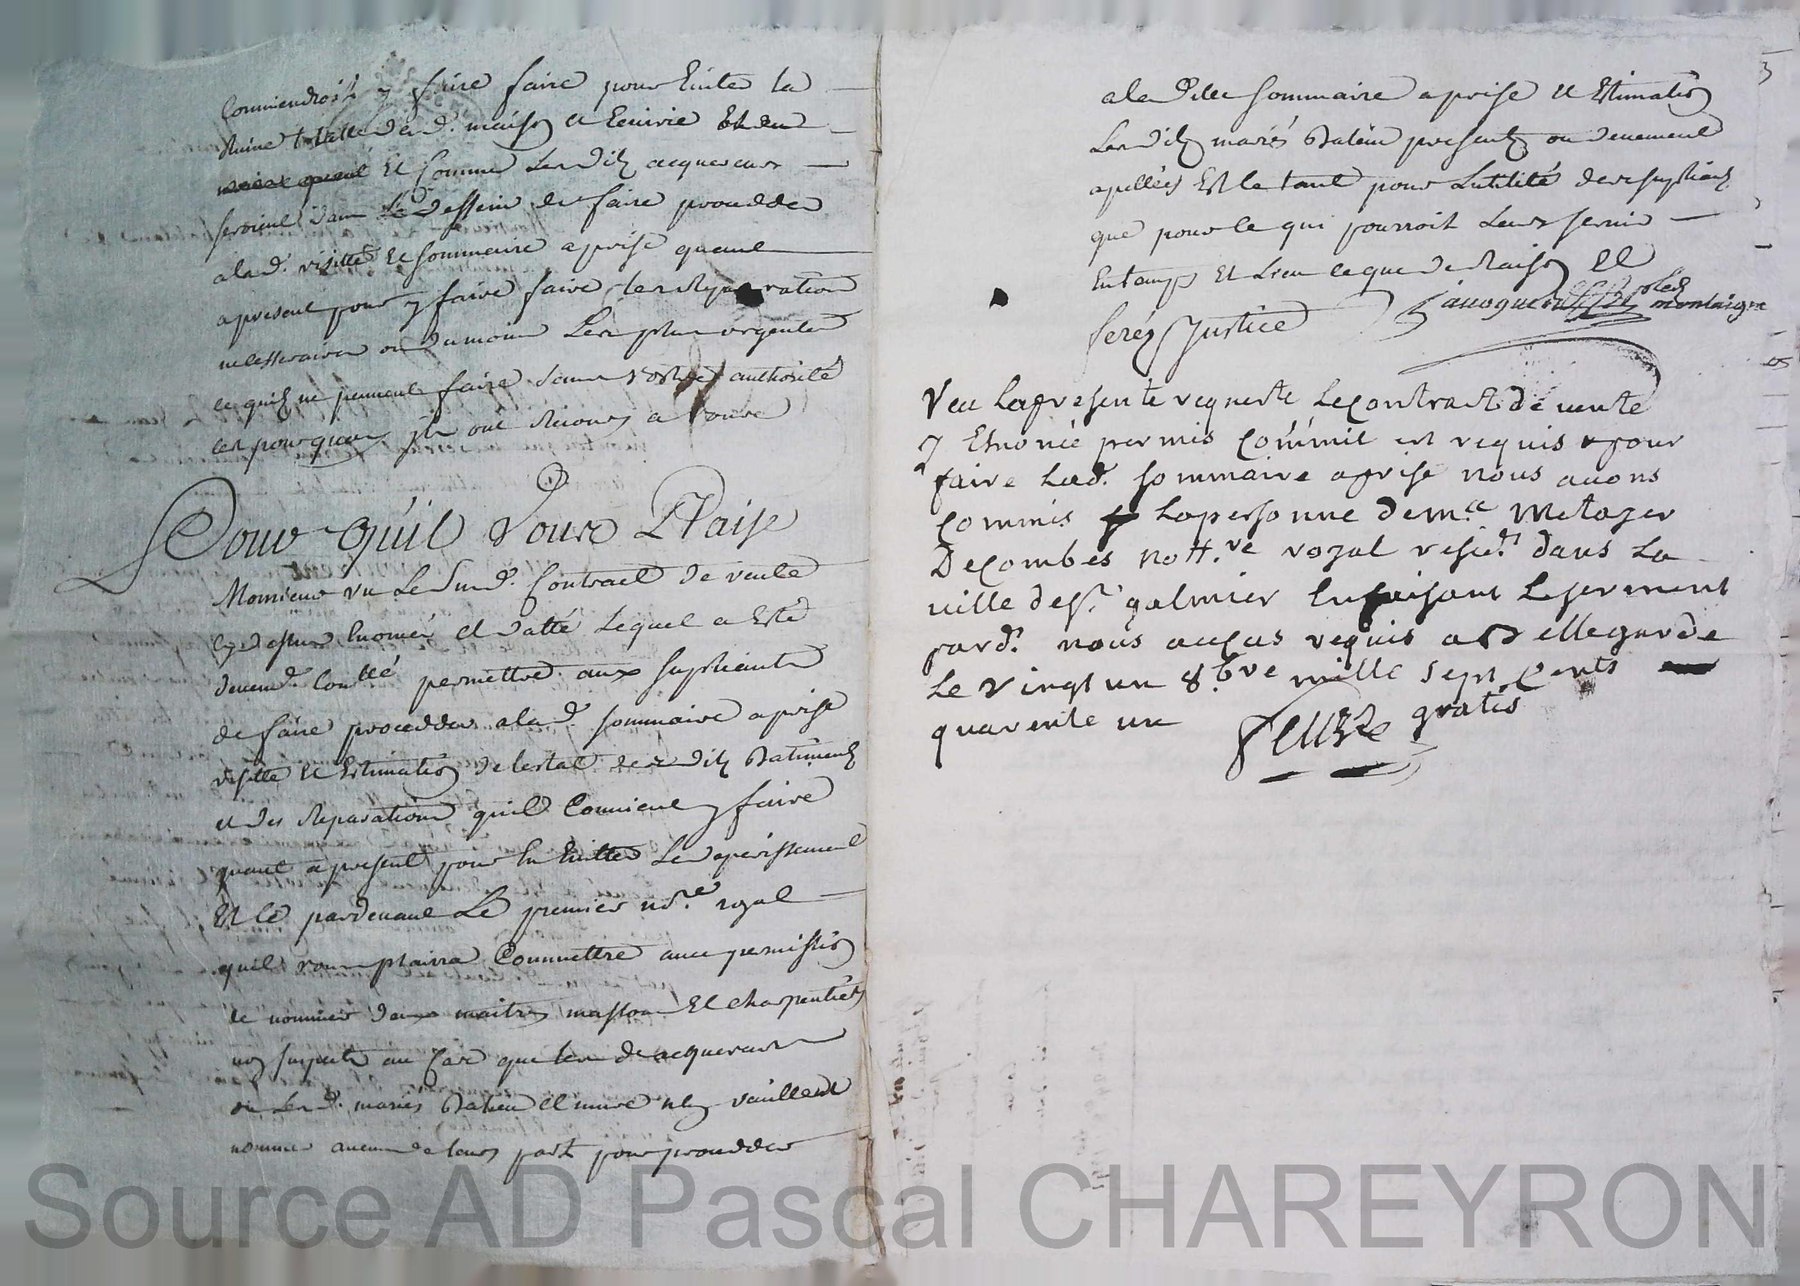 Conviendroit y faire faire pour Eviter la
Ruine totalle de la d. maison et Ecuirie
Et Comme Lesdits acquereurs
seroient dans Le dessein de faire procedder
a la d. visitte et sommaire aprise quant
a present pour y faire faire les Reparations
necessaires ou du moins Les plus urgentes
ce quils ne peuvent faire sans vostre authorité
cest pourquoy ils ont Recours a vous
Pour Quil Vous Plaise
Monsieur vu Le Susd. Contract de vente
cy dessus Enoncés et datté Lequel a Esté
permettre aux supliants
de faire procedder a la d. sommaire aprise
visitte et Estimation de lestat desdits Batiments
et des Reparations quil Convient y faire
quant a present pour En Eviter Le deperissement
Et ce pardevant Le premier no.re royal
quil vous plairra Commettre avec permission
de nommer deux maitres masson Et charpentier
non suspects au Cas que les d. acquereurs
ou Les d. mariés n'en vouillent
nommer aucun de leurs part pour procedder
3
a la dite Sommaire aprise et Estimation
Lesdits mariés presents ou deuement
apellés Et ce tant pour Lutilité des suplians
que pour ce qui pourroit Leurs servir
En temps Et Lieu ce que de Raison Et
ferés Justice
montaigne
Veu La presente requeste Le contract de vente
y Enoncé permis Commit est requis pour
faire Lad. sommaire aprise nous avons
commis La personne de m.e Metayer
Decombes nott.re royal resid.t dans La
ville de S.t galmier En faisant Le serment
pard.t nous au cas requis a Bellegarde
Le vingt un 8.bre mille sept cents
quarente un
gratis
Source AD Pascal CHAREYRON